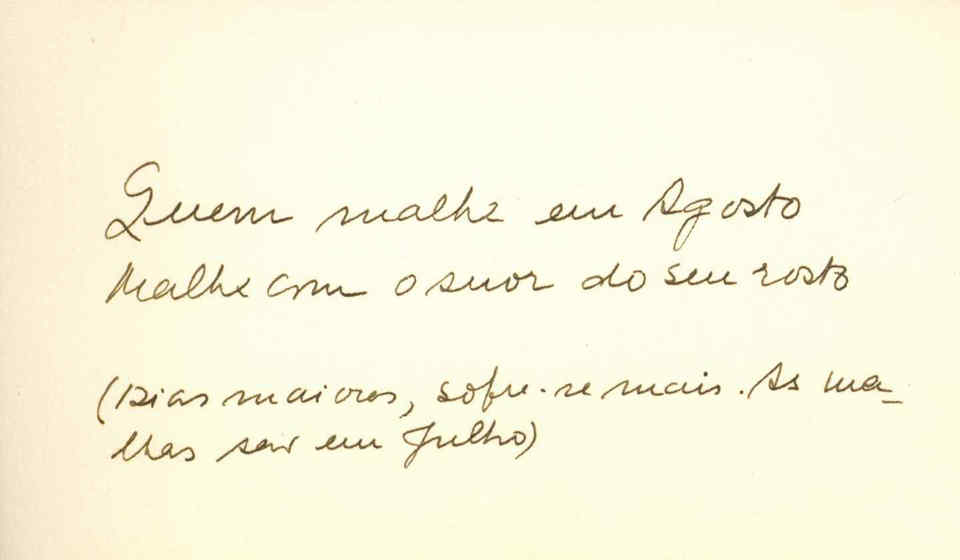 Quem malha em Agosto
Malha com o suor do seu rosto
(Dias maiores, sofre-se mais. As ma-
lhas são em Julho)